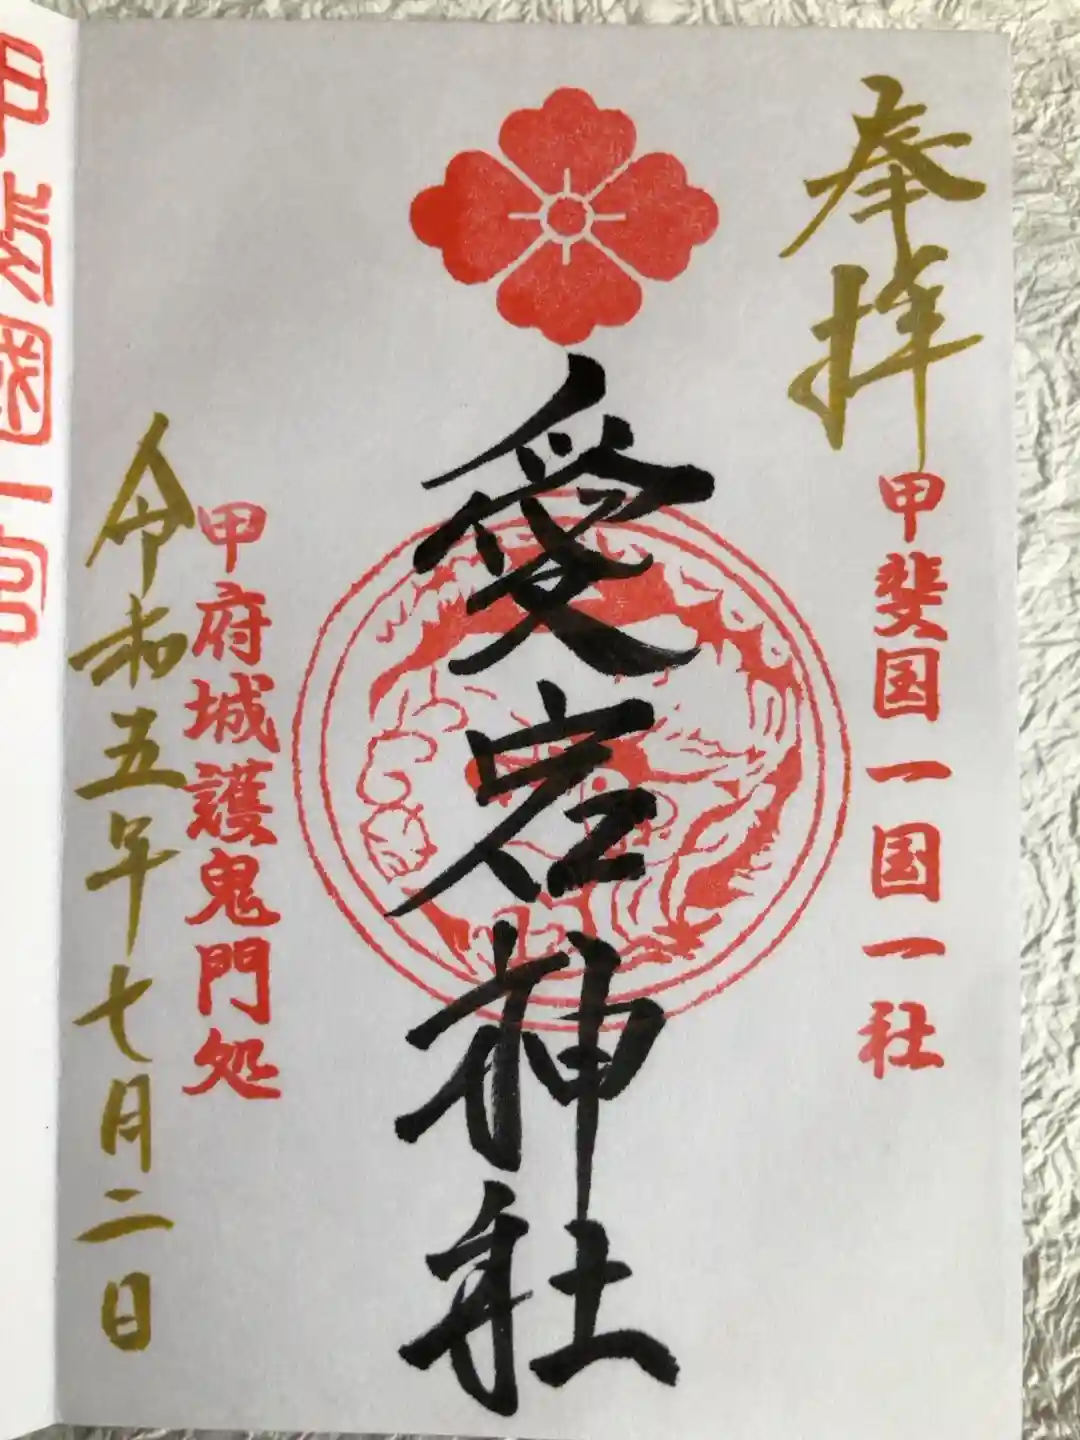 奉拝
甲斐国一国一社
愛宕神社
甲府城護鬼門処
令和五年七月二日
甲斐國一宮